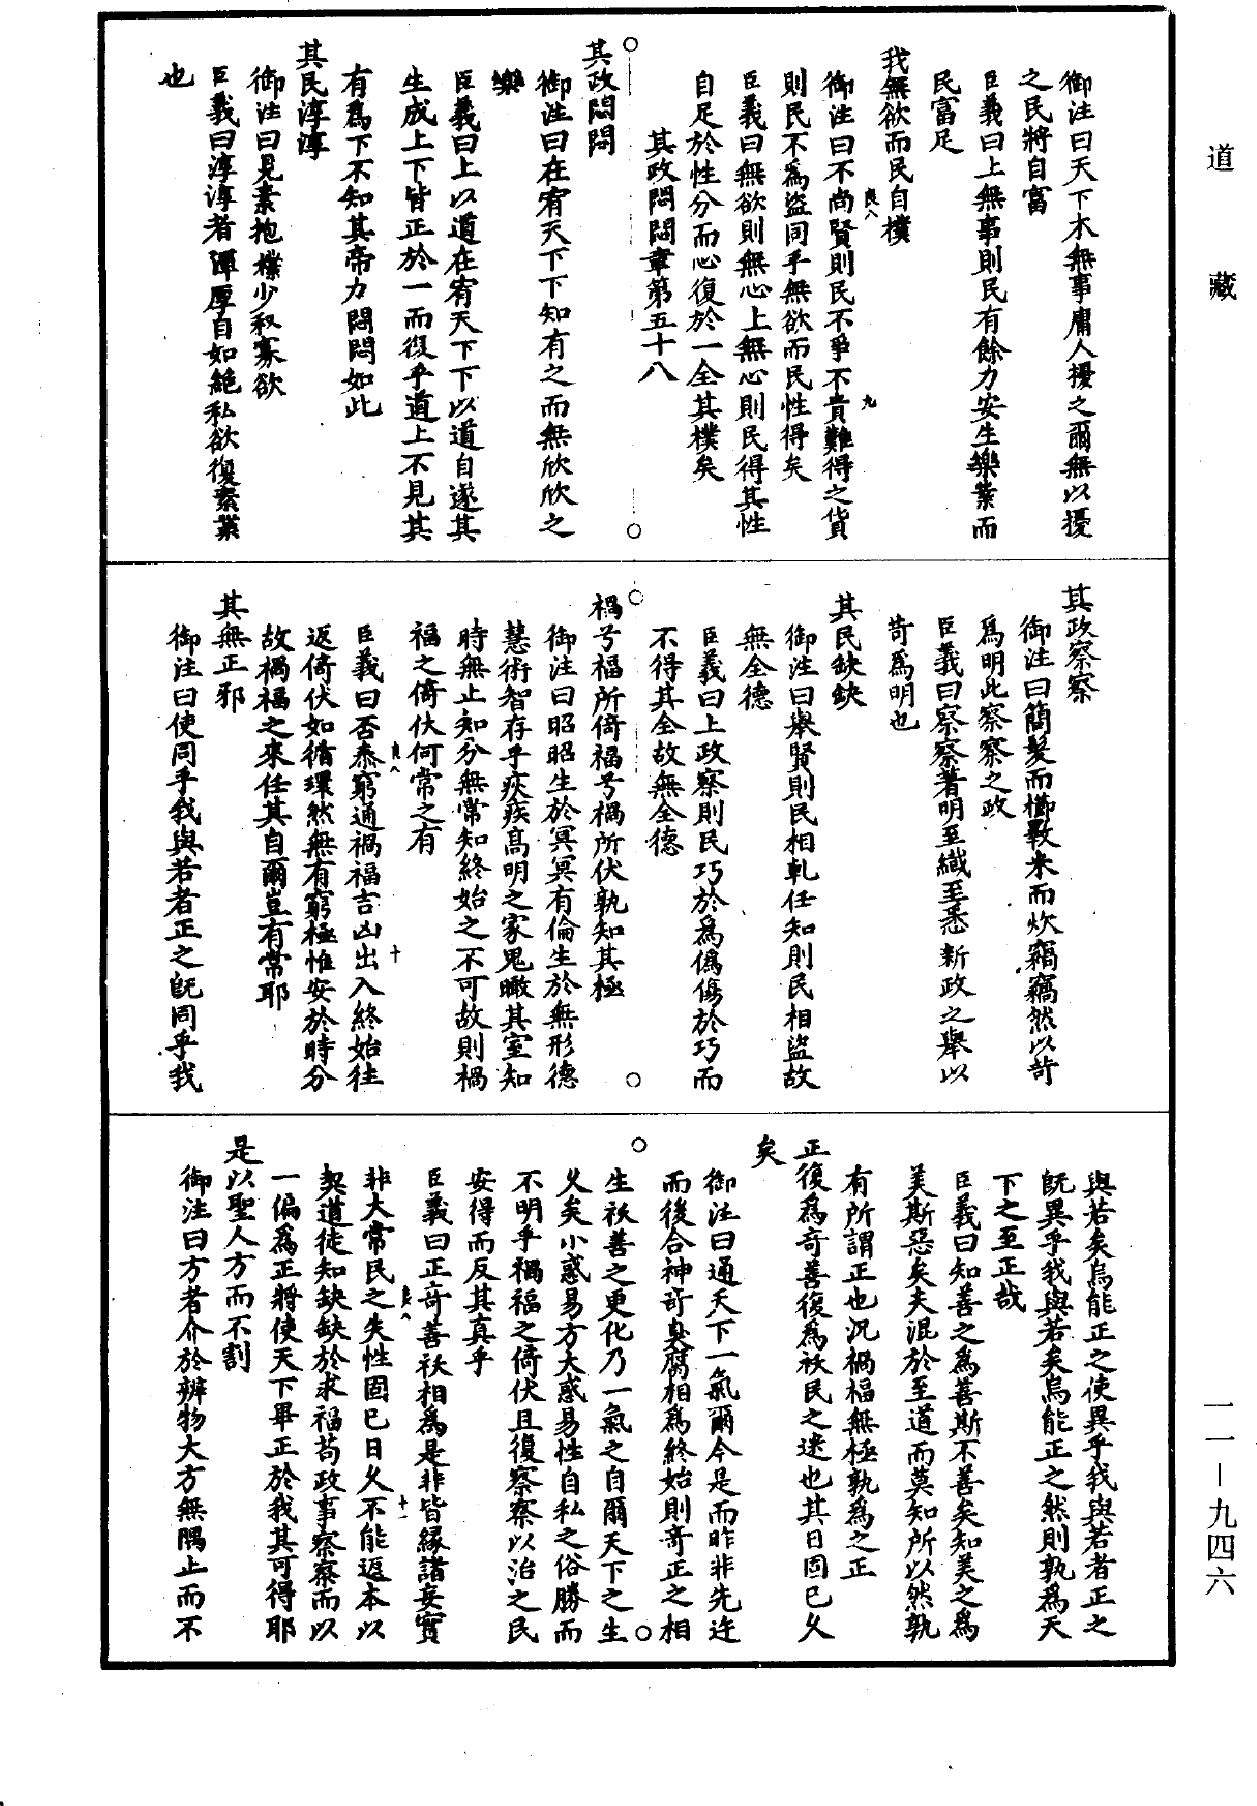 道藏
御注曰天下本無事庸人擾之爾無以擾
之民將自富
臣義曰上無事則民有餘力安生樂業而
民富足
我無欲而民自樸
良八
九
御注曰不尚賢則民不爭不貴難得之貨
則民不為盜同乎無欲而民性得矣
臣義曰無欲則無心上無心則民得其性
自足於性分而心復於一全其樸矣
其政悶悶章第五十八
其政悶悶
御注曰在宥天下下知有之而無欣欣之
樂
臣義曰上以道在宥天下下以道自遂其
生成上下皆正於一而復乎道上不見其
有為下不知其帝力悶悶如此
其民淳淳
御注曰見素抱樸少私寡欲
臣義曰淳淳者渾厚自如絕私欲復素業
也
其政察察
御注曰簡髮而櫛數米而炊竊竊然以苛
為明此察察之政
臣義曰察察著明至纖至悉新政之舉以
苛為明也
其民缺缺
御注曰舉賢則民相軋任知則民相盜故
無全德
臣義曰上政察則民巧於為偽傷於巧而
不得其全故無全德
禍兮福所倚福兮禍所伏孰知其極
御注曰昭昭生於冥冥有倫生於無形德
慧術智存乎疢疾高明之家鬼瞰其室知
時無止知分無常知終始之不可故則禍
福之倚伏何常之有
良八
十
臣義曰否泰窮通禍福吉凶出入終始往
返倚伏如循環然無有窮極惟安於時分
故禍福之來任其自爾豈有常耶
其無正邪
御注曰使同乎我與若者正之旣同乎我
與若矣烏能正之使異乎我與若者正之
旣異乎我與若矣烏能正之然則孰為天
下之至正哉
臣義曰知善之為善斯不善矣知美之為
美斯惡矣夫混於至道而莫知所以然孰
有所謂正也況禍福無極孰為之正
正復為奇善復為祅民之迷也其日固已久
矣
御注曰通天下一氣爾今是而昨非先迕
而後合神奇臭腐相為終始則奇正之相
生祅善之更化乃一氣之自爾天下之生
久矣小惑易方大惑易性自私之俗勝而
不明乎禍福之倚伏且復察察以治之民
安得而反其真乎
臣義曰正奇善祅相為是非皆緣諸妄實
良八
十一
非大常民之失性固已日久不能返本以
契道徒知缺缺於求福苟政事察察而以
一偏為正將使天下畢正於我其可得耶
是以聖人方而不割
御注曰方者介於辨物大方無隅止而不
一一—九四六